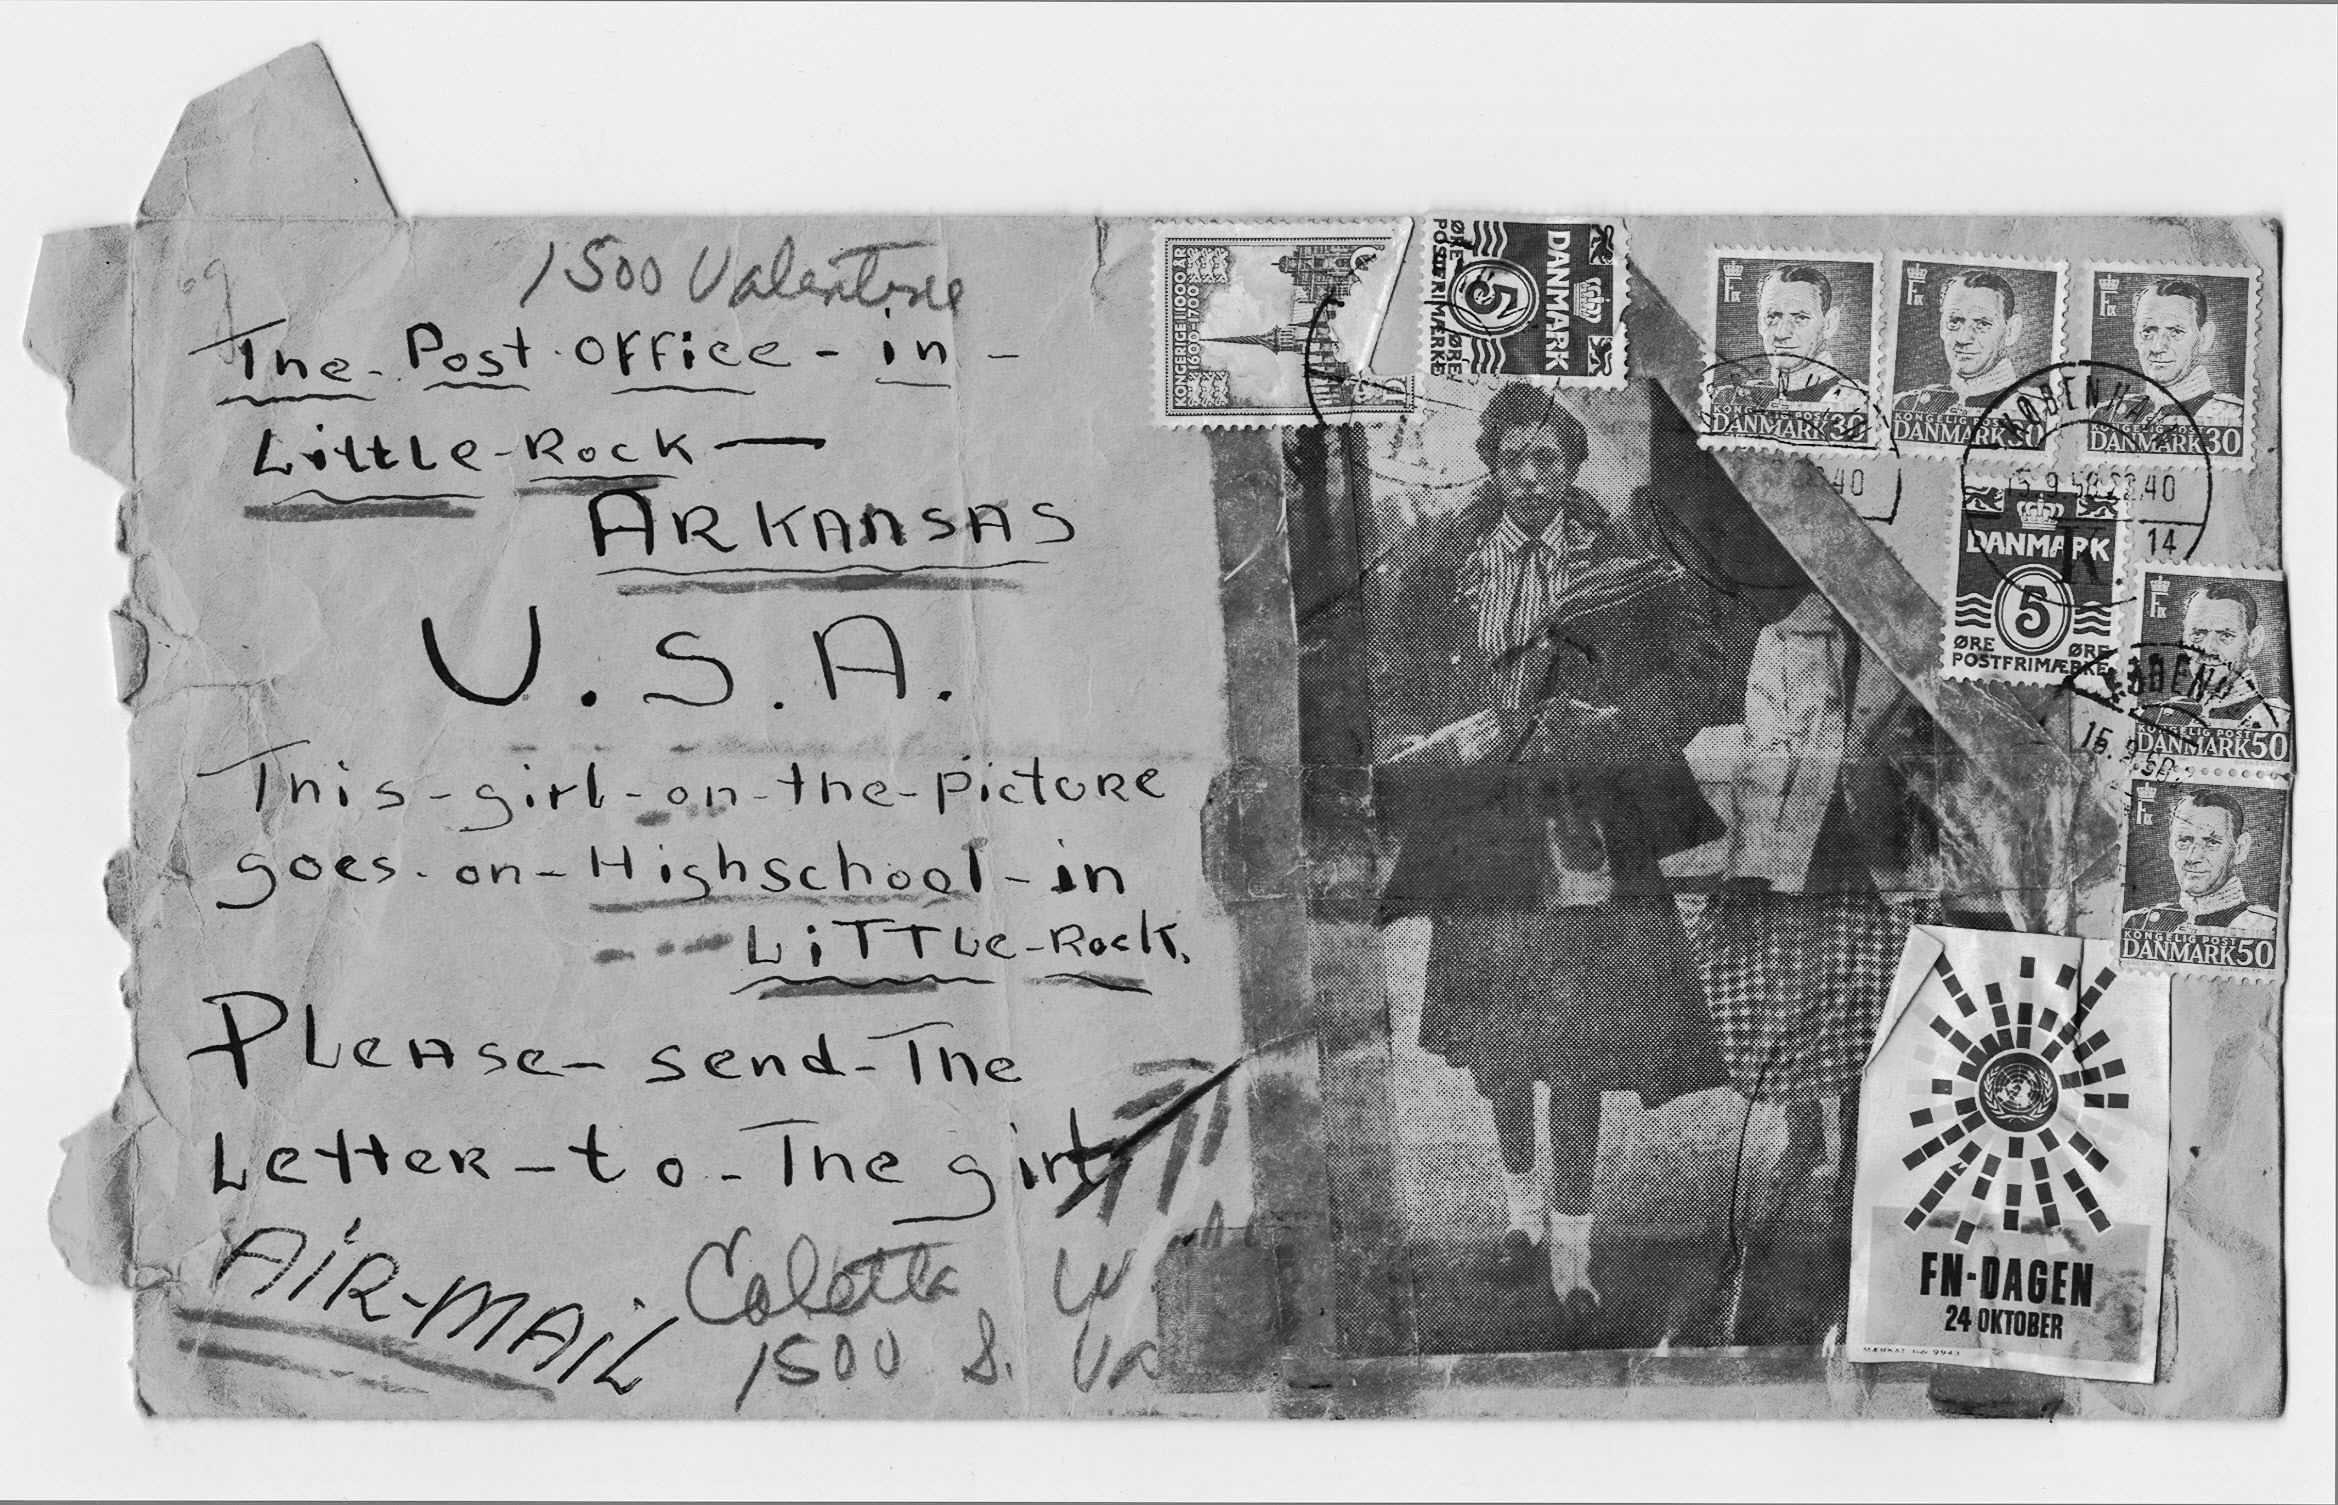 1500 Valentine
The-Post-Office-in-
Little-Rock—
ARKANSAS
U.S.A.
This-girl-on-the-picture
goes-on-Highschool-in
LiTTLe-Rock.
PLeAse-send-The
Letter-to-The girl
AiR-MAiL
1500 S. Va
KONGERIGE I 1000 ÅR
1600-1700
DANMARK
5
ØRE ØRE
POSTFRIMÆRKE
KONGELIG POST
DANMARK 30
KONGELIG POST
DANMARK 30
KONGELIG POST
DANMARK 30
KØBENHA
15.9.58 22.40
14
K
DANMARK
5
ØRE ØRE
POSTFRIMÆRKE
KONGELIG POST
DANMARK 50
KONGELIG POST
DANMARK 50
FN-DAGEN
24 OKTOBER